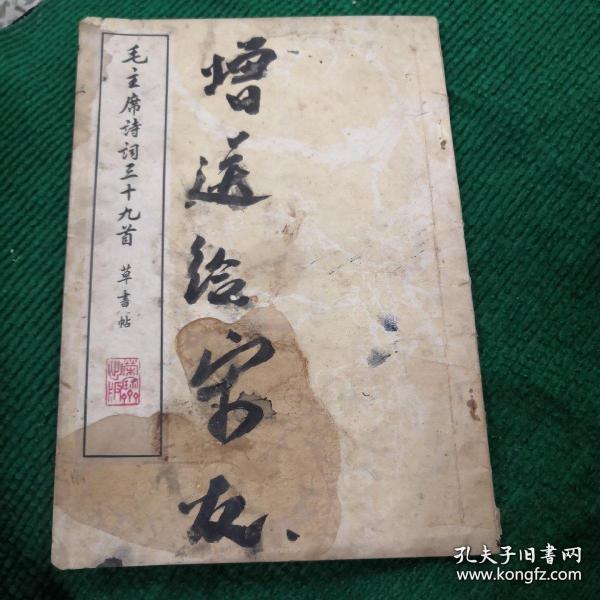 毛主席诗词三十九首 草书帖
增送给字友
孔夫子旧书网
www.kongfz.com